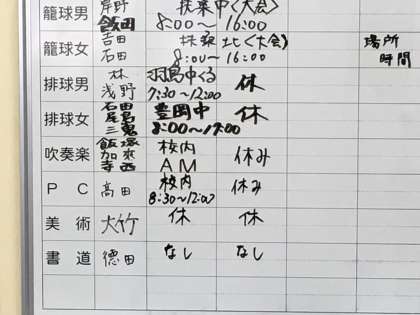 籠球男 岸野 扶桑中〈大会〉
飯田 8:00～16:00
籠球女 吉田 扶桑北〈大会〉 場所
石田 8:00～16:00 時間
排球男 林 羽島中くる 休
浅野 7:30～12:00
排球女 石田 豊岡中 休
尾嶌 8:00～17:00
三鬼
吹奏楽 飯塚 校内 休み
加來 AM
寺西
PC 高田 校内 休み
8:30～12:00
美術 大竹 休 休
書道 德田 なし なし